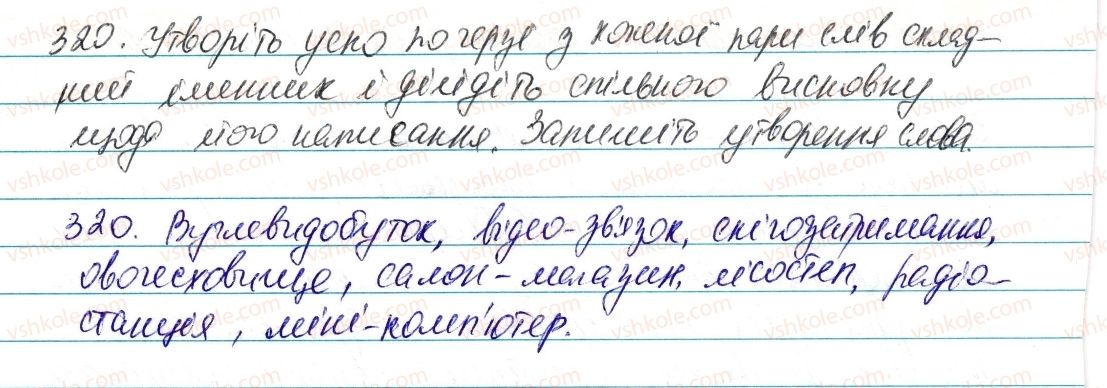 320. Утворіть усно по черзі з кожної пари слів склад-
ний іменник і дійдіть спільного висновку
щодо його написання. Запишіть утворення слова.
320. Вуглевидобуток, відео-зв'язок, снігозатримання,
овочесховище, салон-магазин, лісостеп, радіо-
станція, міні-комп'ютер.